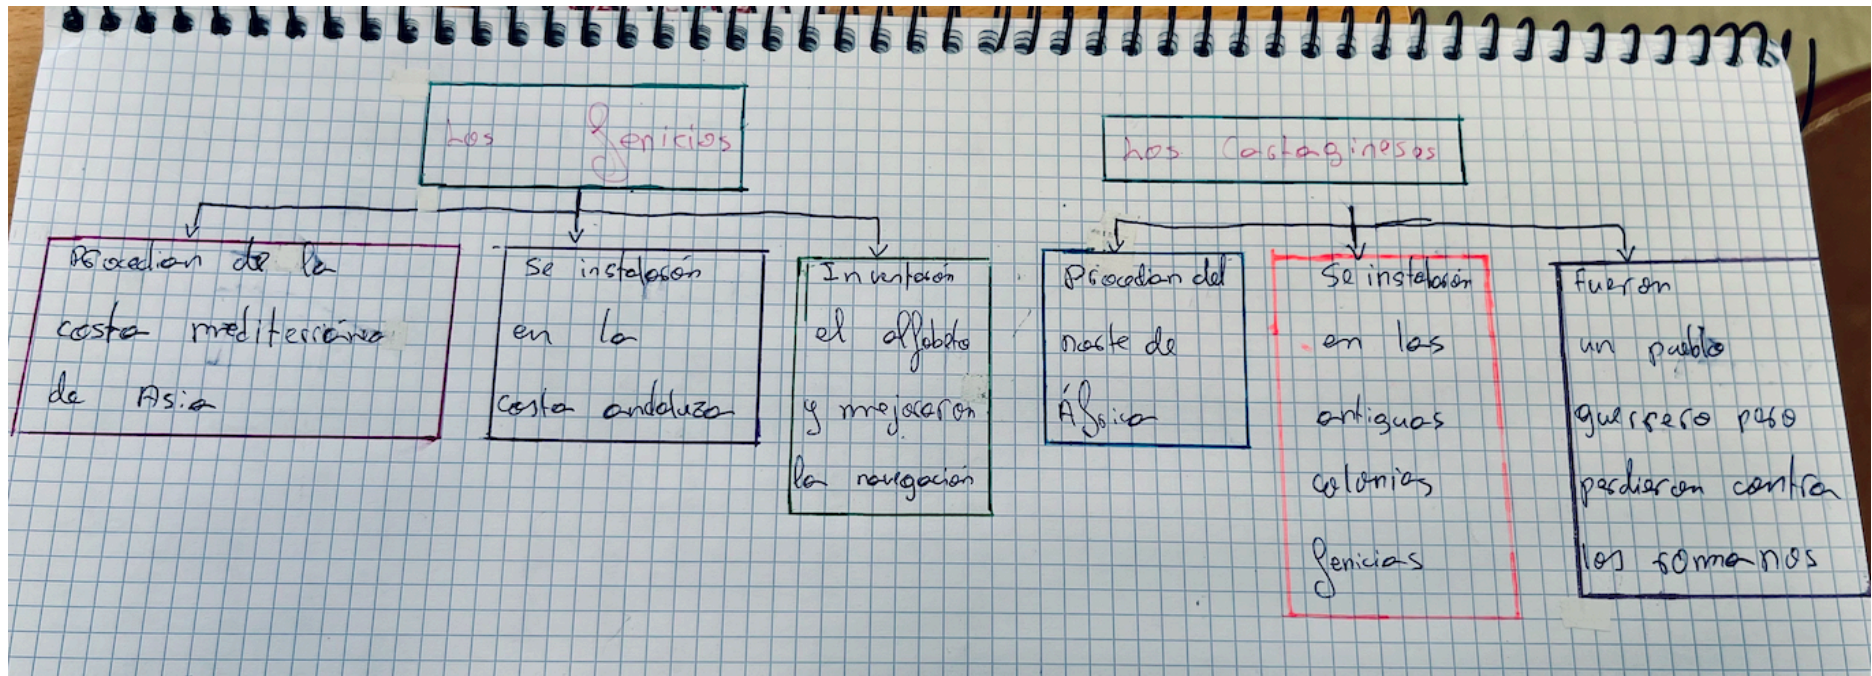 Los fenicios
Procedian de la
costa mediterránea
de Asia
Se instalarón
en la
costa andaluza
Inventarón
el alfabeto
y mejoraron
la navegación
Los Cartagineses
Procedian del
norte de
África
Se instalarón
en las
antiguas
colonias
fenicias
fueron
un pueblo
guerrero pero
perdieron contra
los romanos